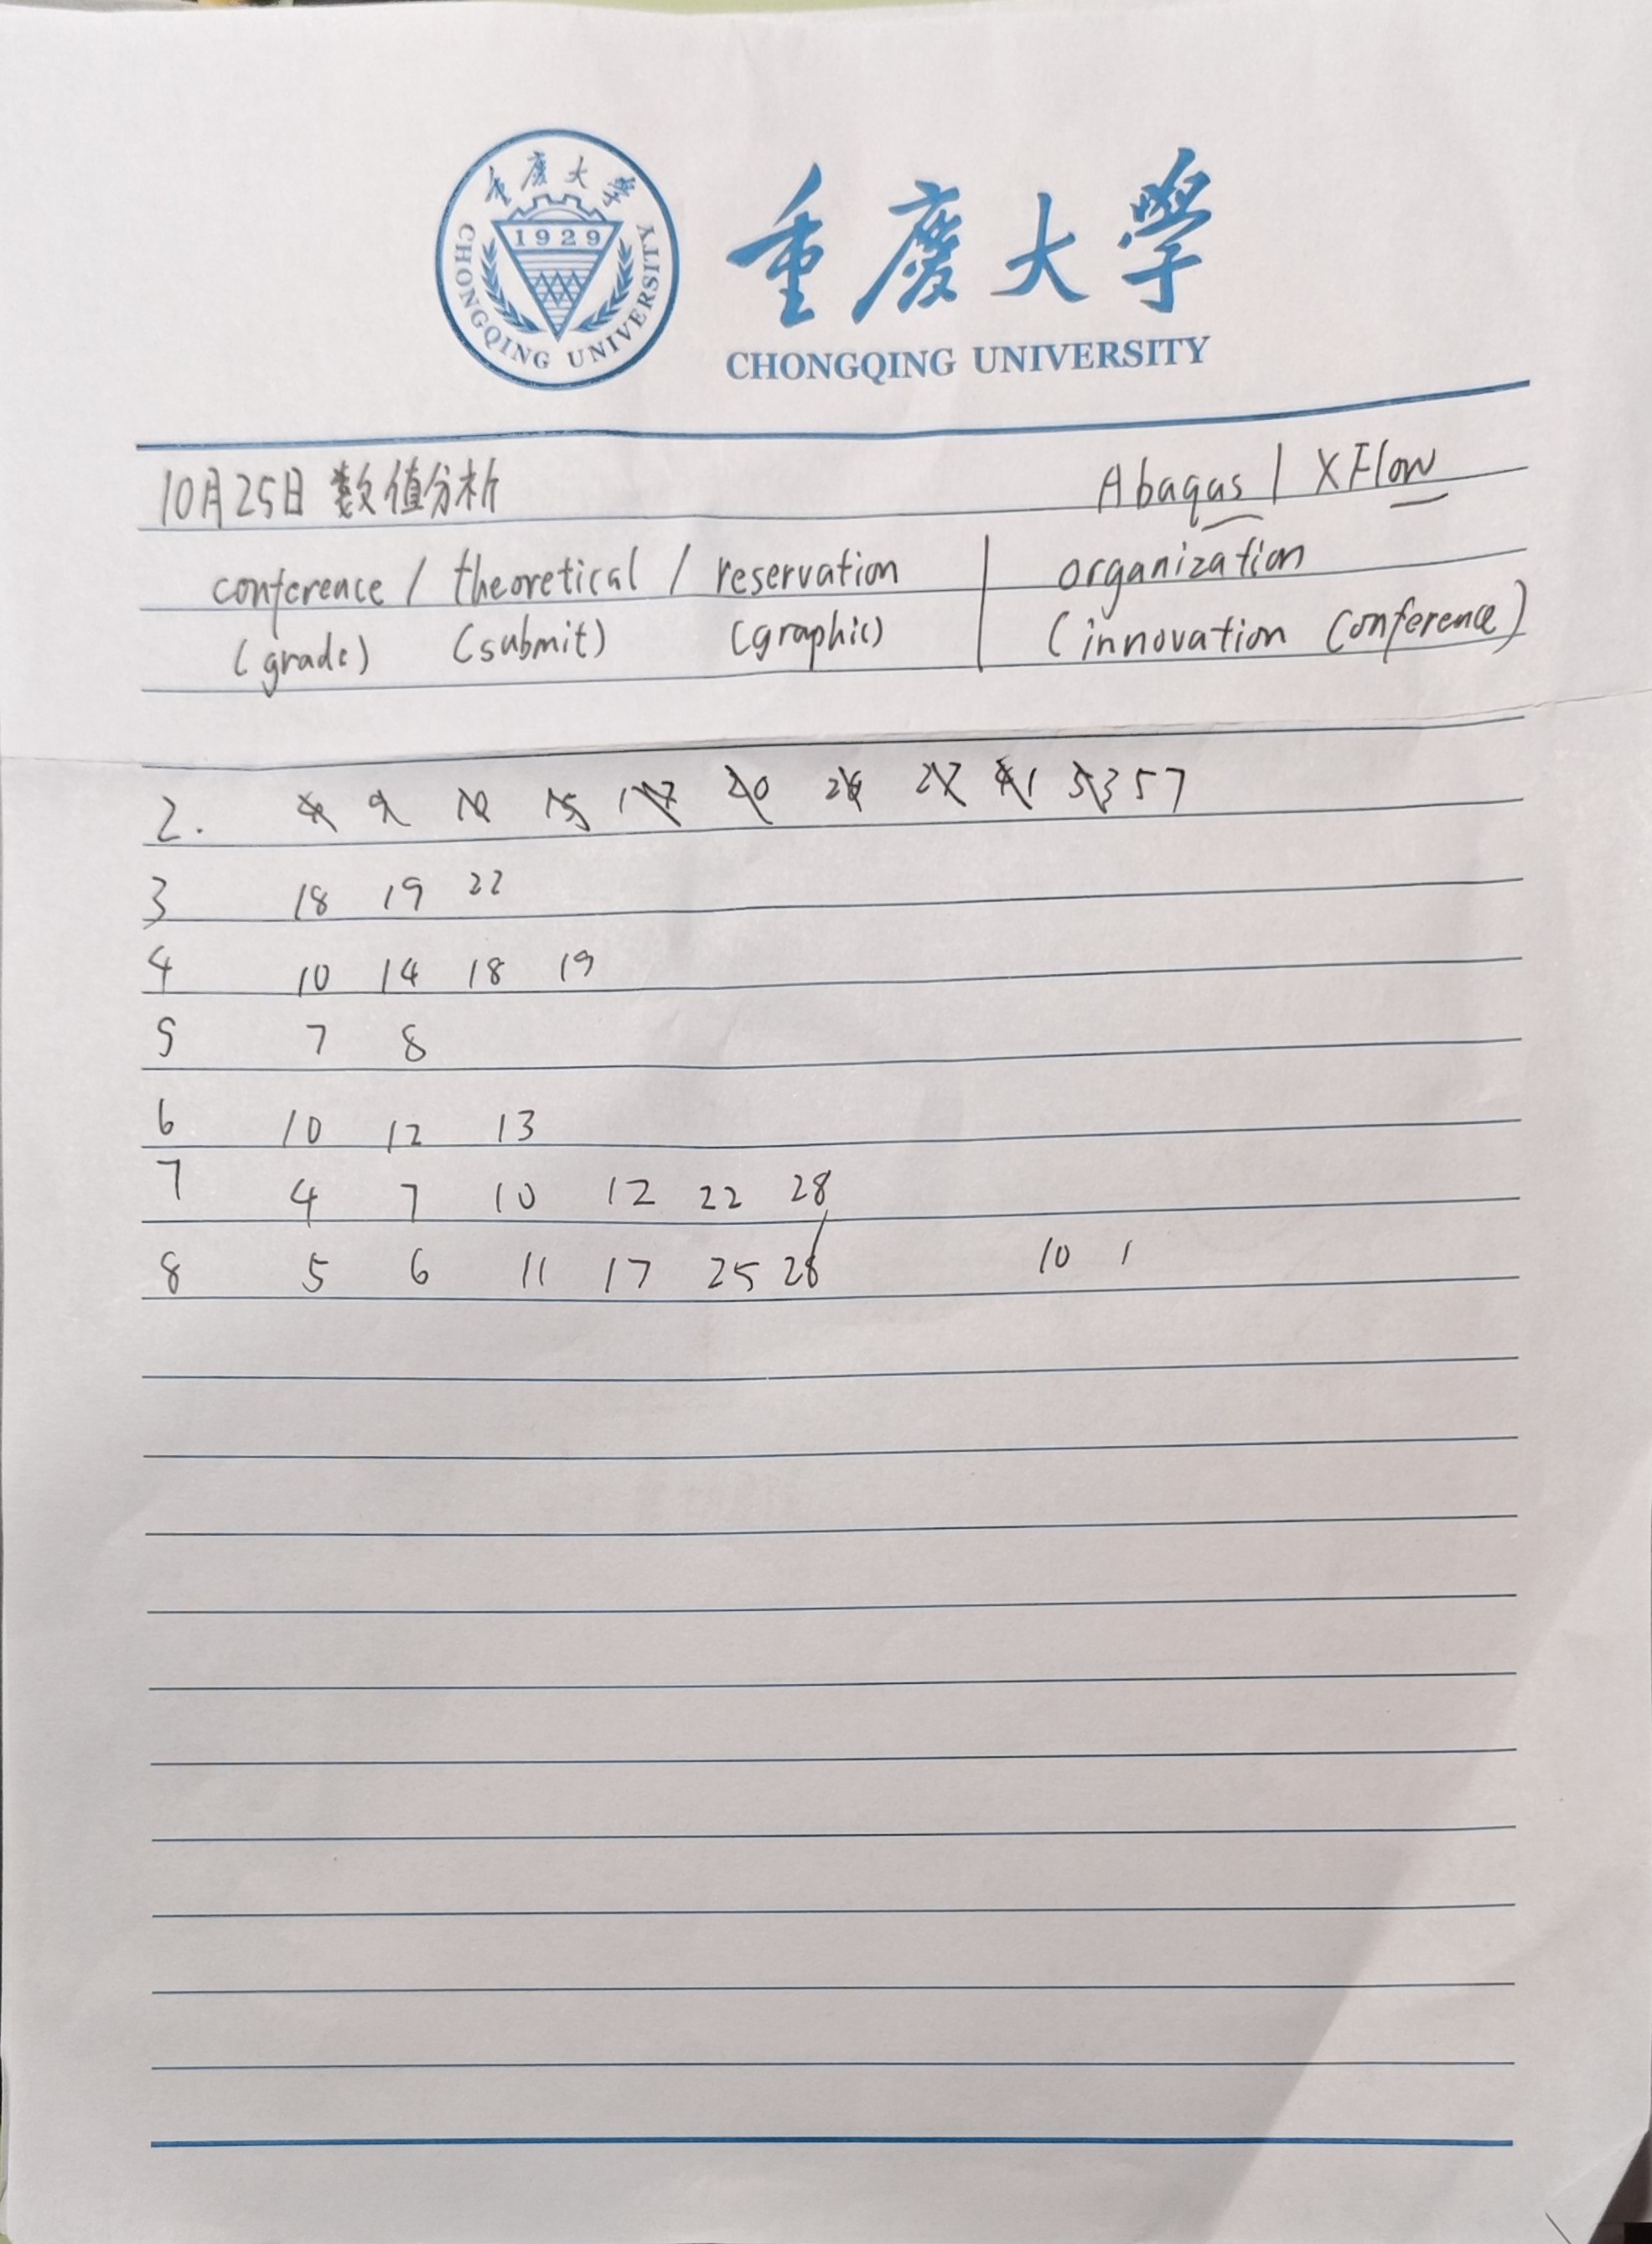 重慶大學
1929
CHONGQING UNIVERSITY
重慶大學
CHONGQING UNIVERSITY
10月25日 数值分析 Abaqus | XFlow
conference / theoretical / reservation | organization
(grade) (submit) (graphic) | (innovation conference)
2. 4 9 10 15 17 20 26 27 41 53 57
3 18 19 22
4 10 14 18 19
5 7 8
6 10 12 13
7 4 7 10 12 22 28
8 5 6 11 17 25 28 10 1